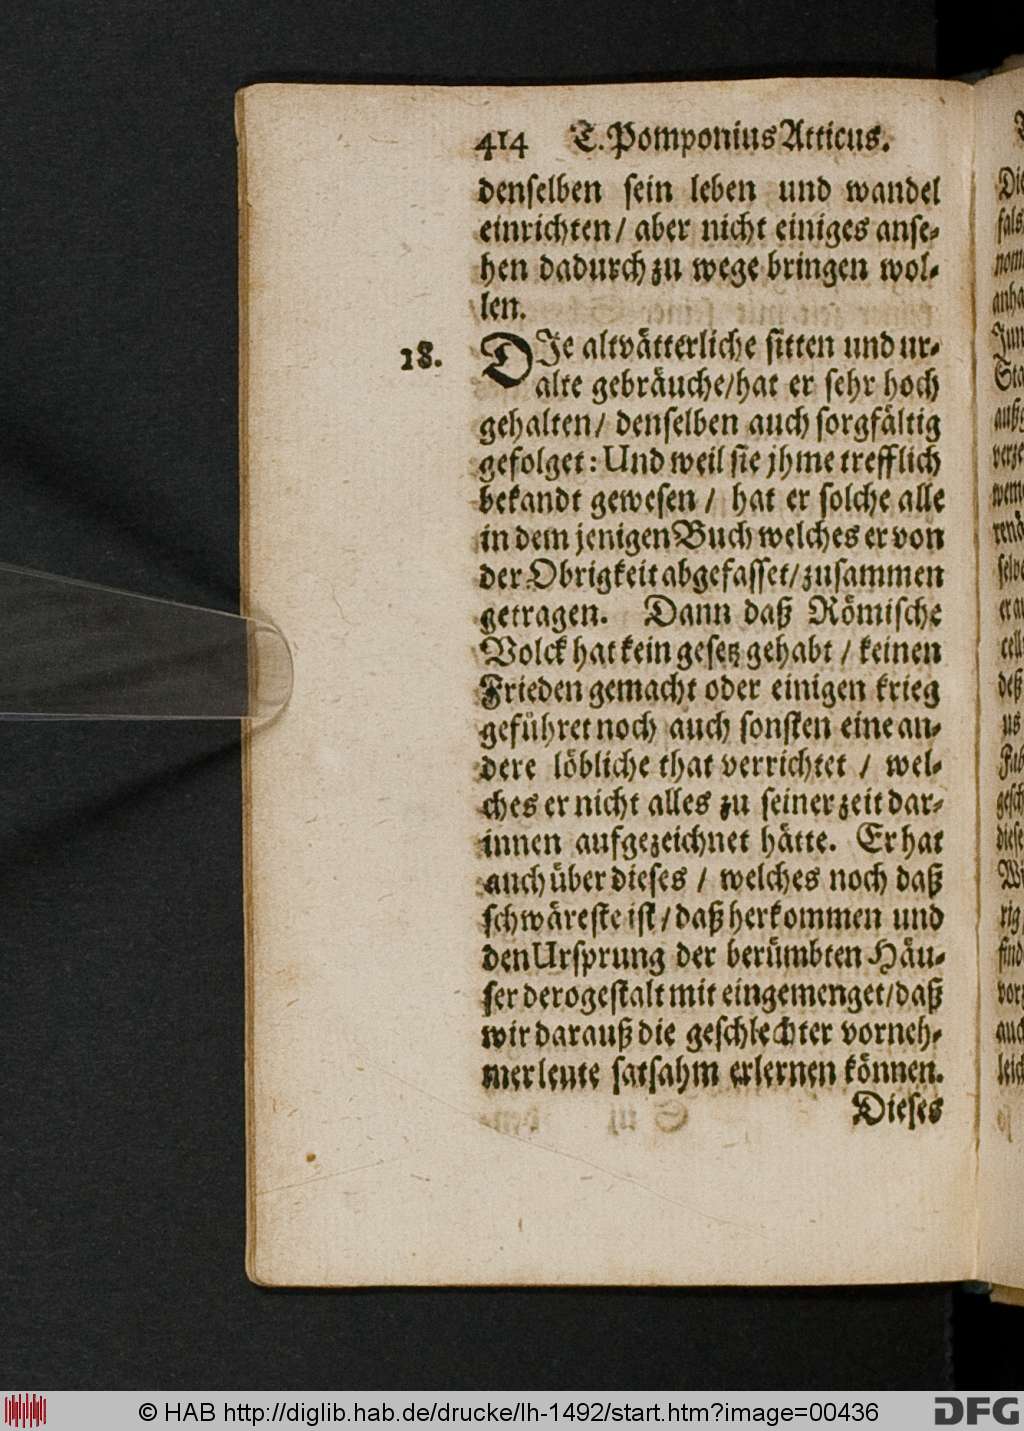 414 T. Pomponius Atticus.
denselben sein leben und wandel
einrichten/ aber nicht einiges anse-
hen dadurch zu wege bringen wol-
len.
18. DIe altvätterliche sitten und ur-
alte gebräuche/hat er sehr hoch
gehalten/ denselben auch sorgfältig
gefolget: Und weil sie jhme trefflich
bekandt gewesen / hat er solche alle
in dem jenigen Buch welches er von
der Obrigkeit abgefasset/zusammen
getragen. Dann daß Römische
Volck hat kein gesetz gehabt / keinen
Frieden gemacht oder einigen krieg
geführet noch auch sonsten eine an-
dere löbliche that verrichtet / wel-
ches er nicht alles zu seiner zeit dar-
innen aufgezeichnet hätte. Er hat
auch über dieses / welches noch daß
schwäreste ist/daß herkommen und
den Ursprung der berümbten Häu-
ser derogestalt mit eingemenget/daß
wir darauß die geschlechter vorneh-
mer leute satsahm erlernen können.
Dieses
© HAB http://diglib.hab.de/drucke/lh-1492/start.htm?image=00436
DFG